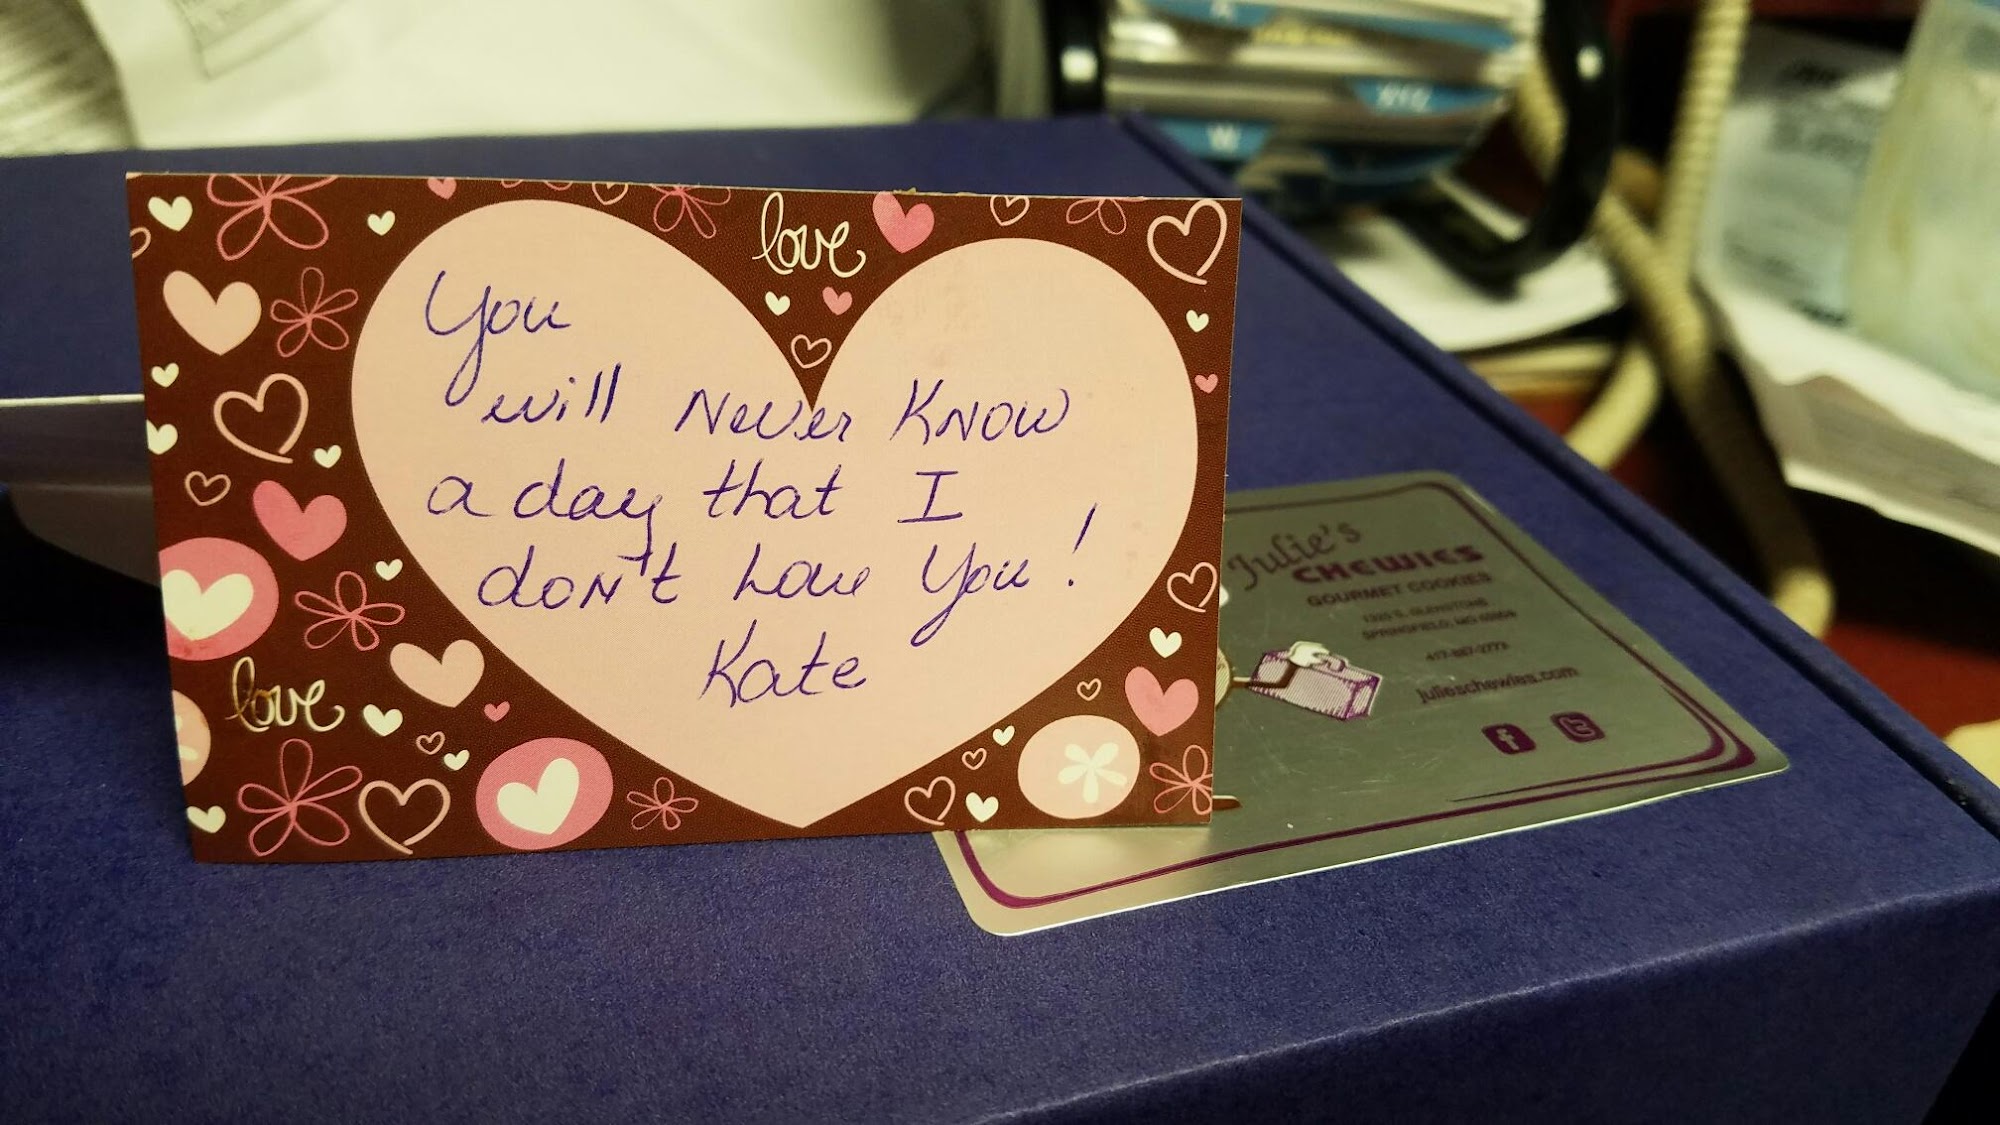 love
You
will never know
a day that I
don't love you!
Kate
love
Julie's
CHEWIES
GOURMET COOKIES
SPRINGFIELD, MO
417-887-2773
julieschewies.com
f
t
W
XYZ